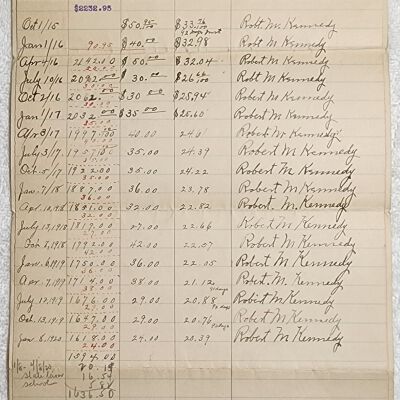 $2232.95
Oct 1/15 $50.95 $33.76 Robt M. Kennedy
92 days Inst
Jan 1/16 90.95 $40.00 $32.98 Robt M Kennedy
Apr 4/16 2142.00 $50.00 $32.04 Robt M. Kennedy
July 10/16 2092.00 $30.00 $26.66 Robt M Kennedy
30.00
Oct 2/16 2062.00 $30.00 $25.94 Robert M. Kennedy
30.00
Jan 1/17 2032.00 $35.00 $25.60 Robert M Kennedy
35.00
Apr 3/17 1997.00 40.00 Robert M Kennedy
July 3/17 1957.00 35.00 24.39 Robert M Kennedy
35.00
Oct. 5/17 1922.00 35.00 24.22 Robert M Kennedy
35.00
Jan. 7/18 1887.00 36.00 23.78 Robert M Kennedy
36.00
Apr. 10, 1918 1851.00 32.00 22.82 Robert M. Kennedy
32.00
July 13, 1918 1819.00 27.00 22.66 Robert M Kennedy
27.00
Oct 7, 1918 1792.00 42.00 22.07 Robert M Kennedy
42.00
Jan. 6, 1919 1750.00 36.00 22.05 Robert M Kennedy
36.00
Apr. 7, 1919 1714.00 38.00 21.12 Robert M. Kennedy
38.00 91 days
July 12, 1919 1676.00 29.00 20.88 Robert M Kennedy
29.00 92 days
Oct. 13, 1919 1647.00 29.00 20.76 Robert M Kennedy
29.00 92 days
Jan. 6, 1920 1618.00 24.00 20.39 Robert M. Kennedy
24.00
1594.00
20.19
State Loan 16.50
school 5.81
1636.50